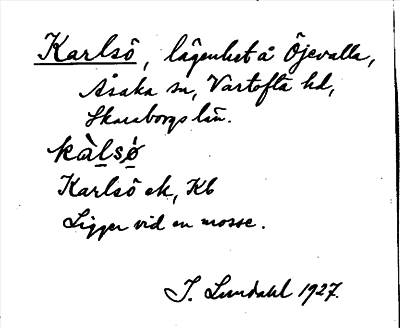 Karlsö, lägenhet å Öjevalla,
Åsaka sn, Vartofta hd,
Skaraborgs län.
kàlsø̀
Karlsö ek, Kb
Ligger vid en mosse.
I. Lundahl 1927.